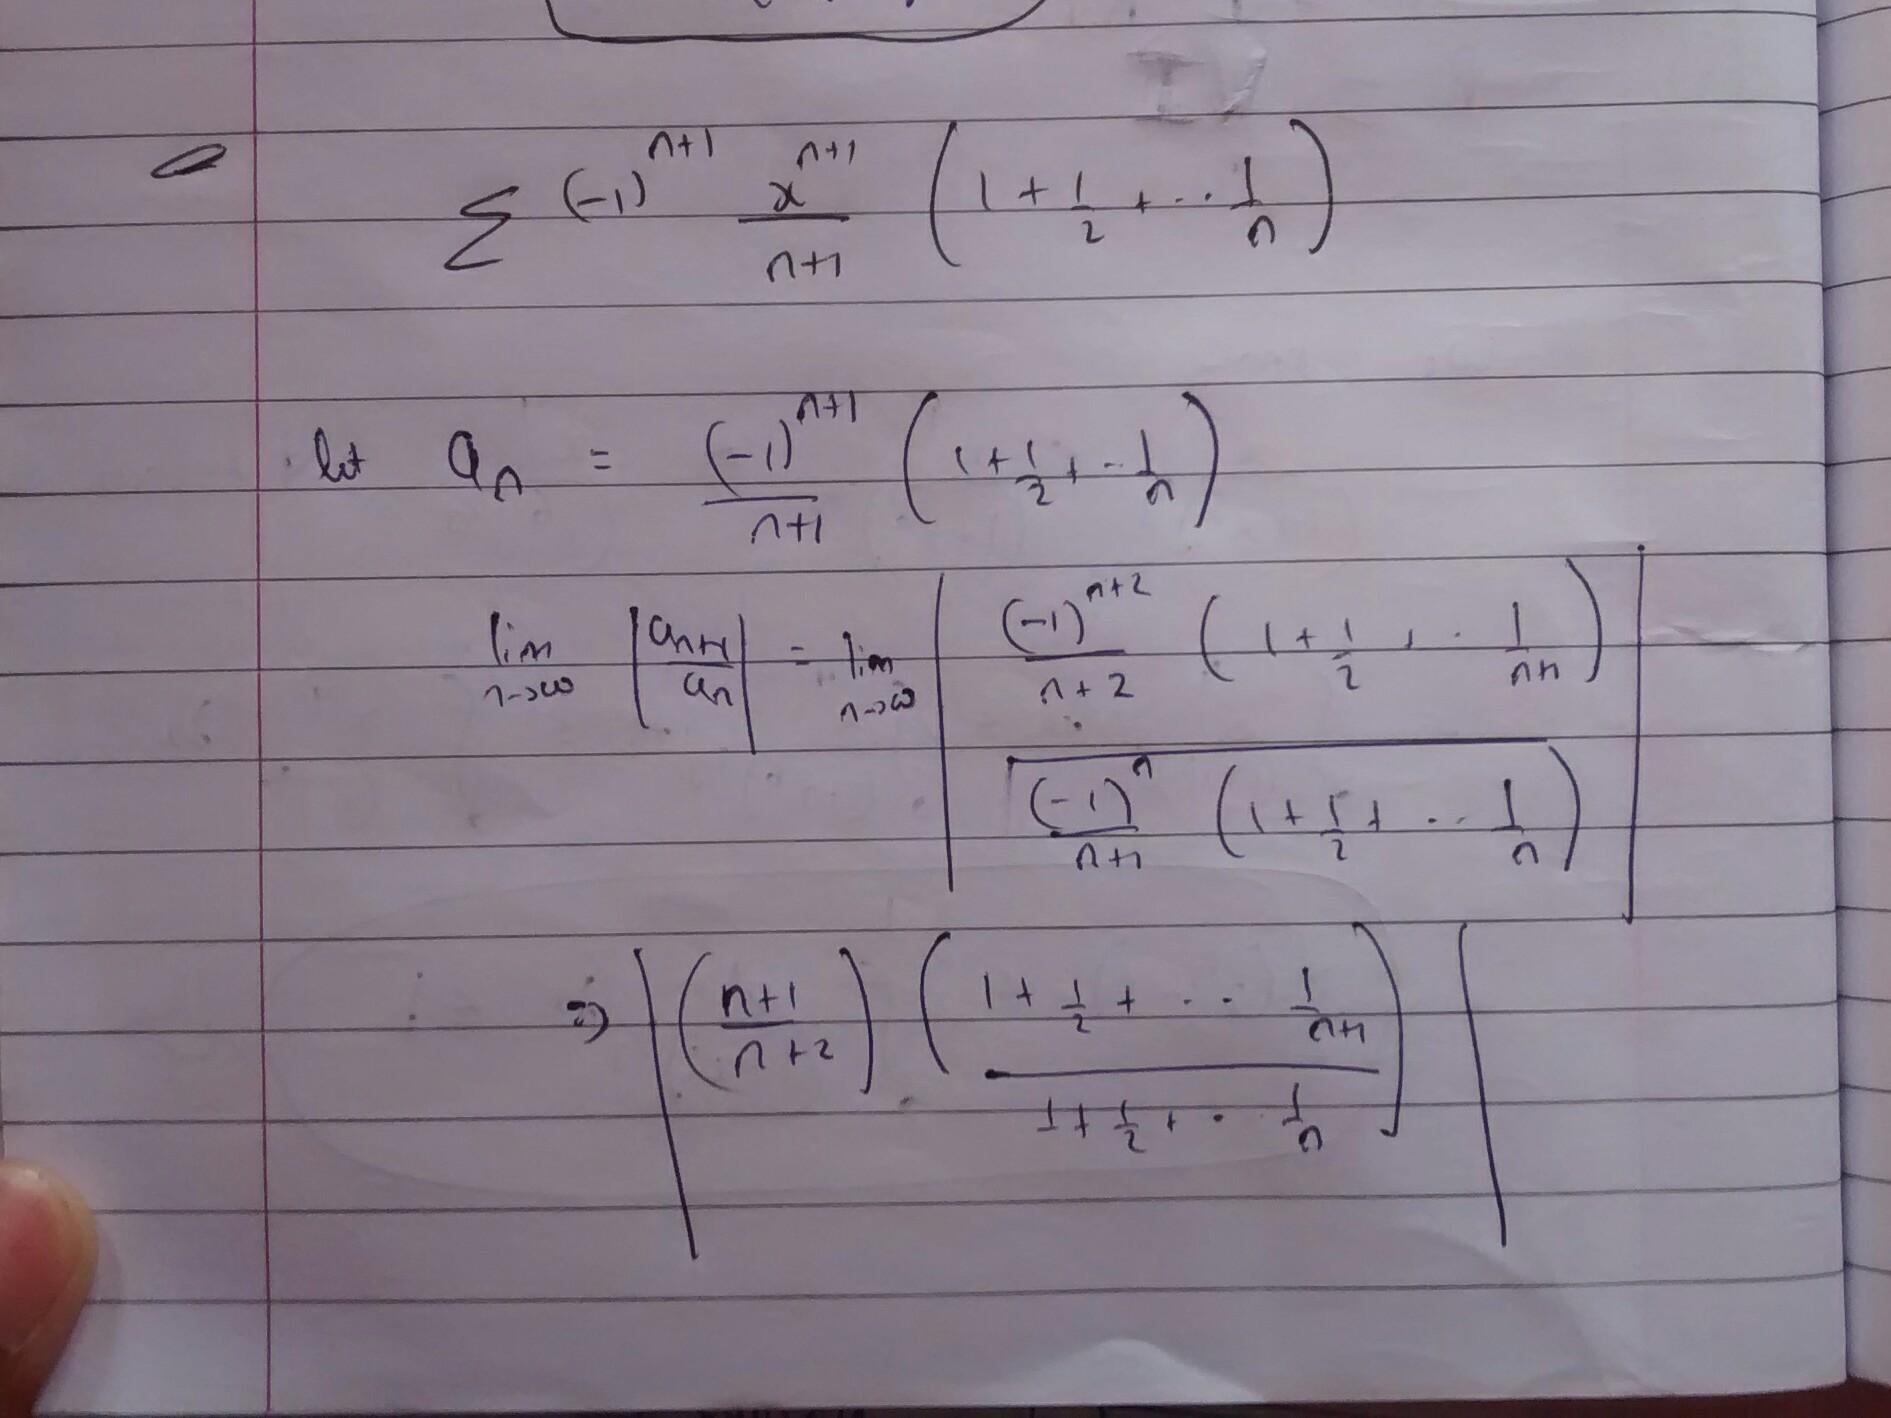 ∑ (-1)^{n+1} x^{n+1}/(n+1) (1 + 1/2 + .. 1/n)
let a_n = (-1)^{n+1}/(n+1) (1 + 1/2 + .. 1/n)
lim_{n→∞} |a_{n+1}/a_n| = lim_{n→∞} | (-1)^{n+2}/(n+2) (1 + 1/2 + .. 1/(n+1)) / (-1)^n/(n+1) (1 + 1/2 + .. 1/n) |
⇒ | ((n+1)/(n+2)) ((1 + 1/2 + .. 1/(n+1)) / (1 + 1/2 + . 1/n)) |